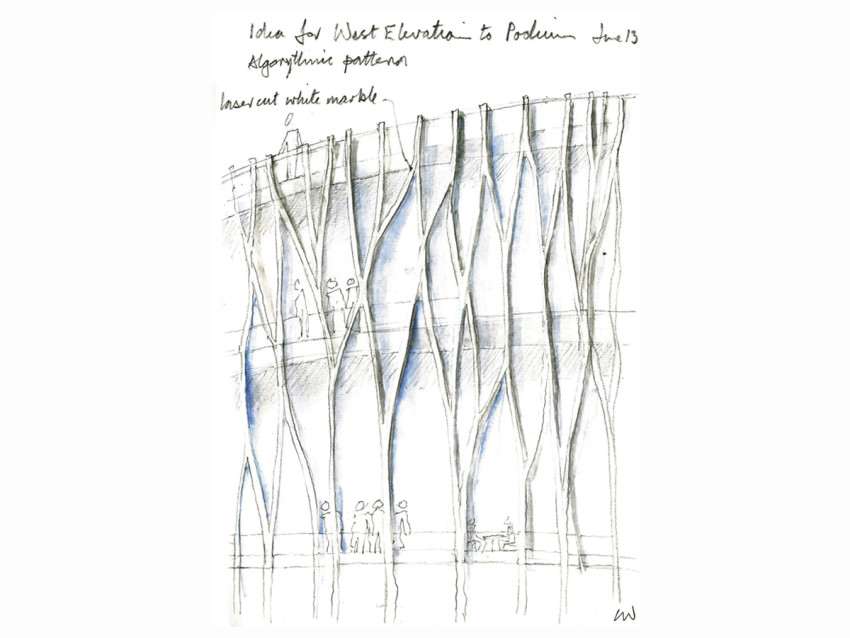 Idea for West Elevation to Podium June 13
Algorythmic pattern
laser cut white marble